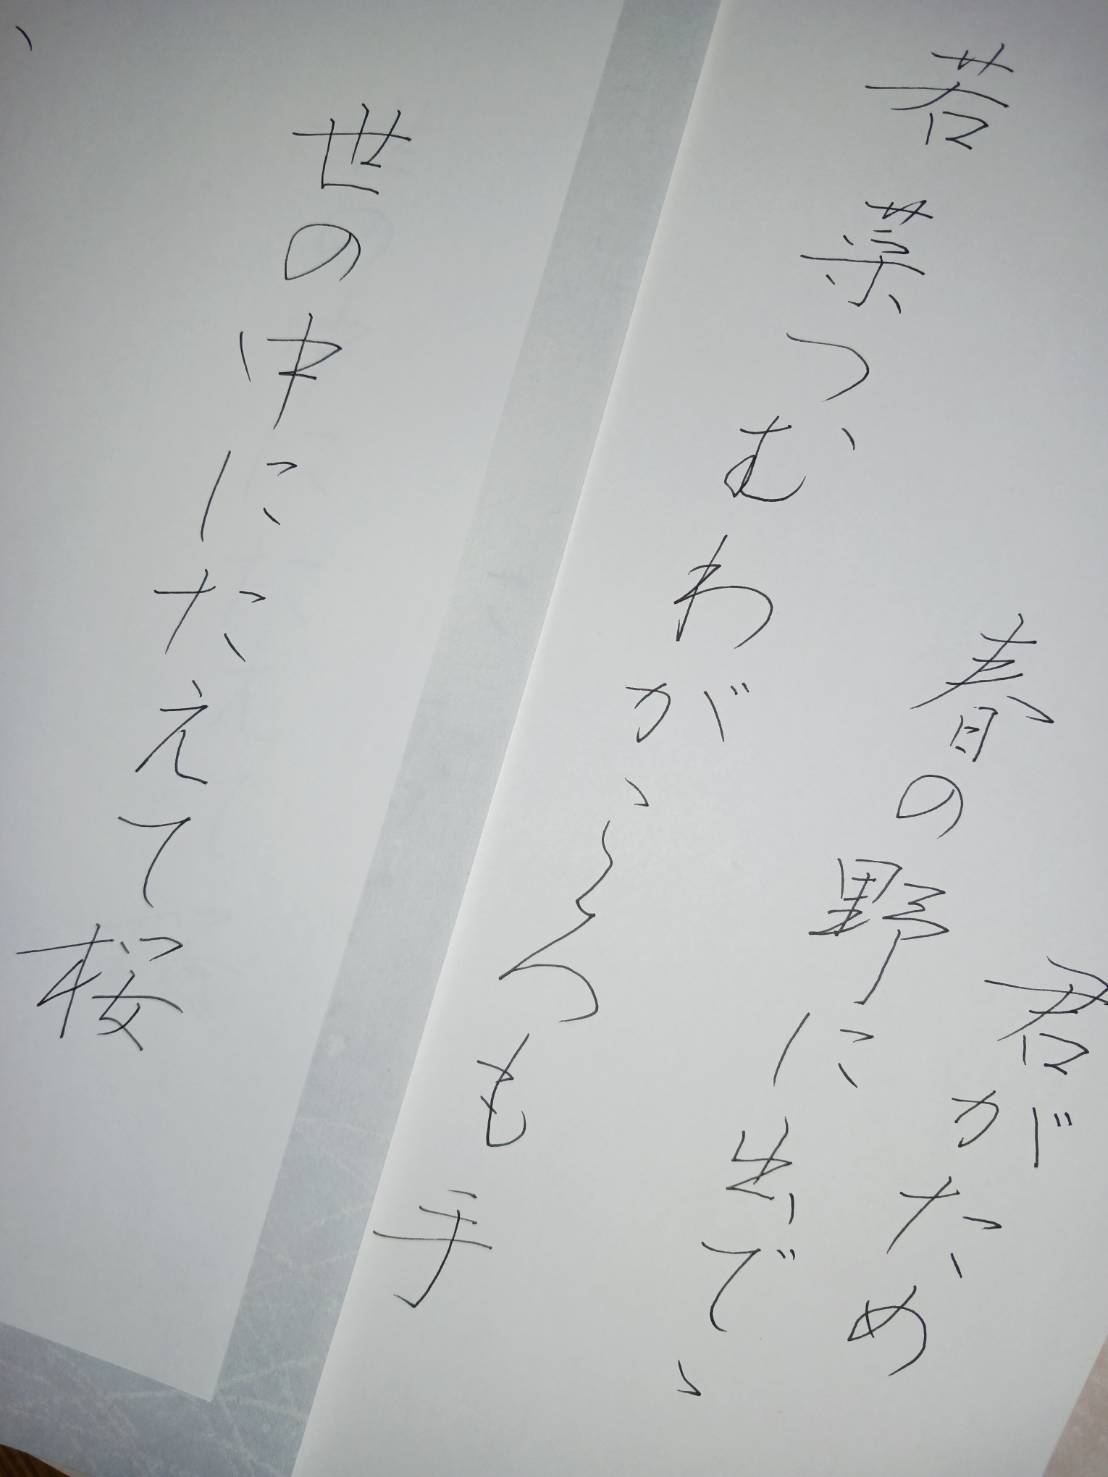 君がため
春の野に出でゝ
若菜つむわがころも手
世の中にたえて桜